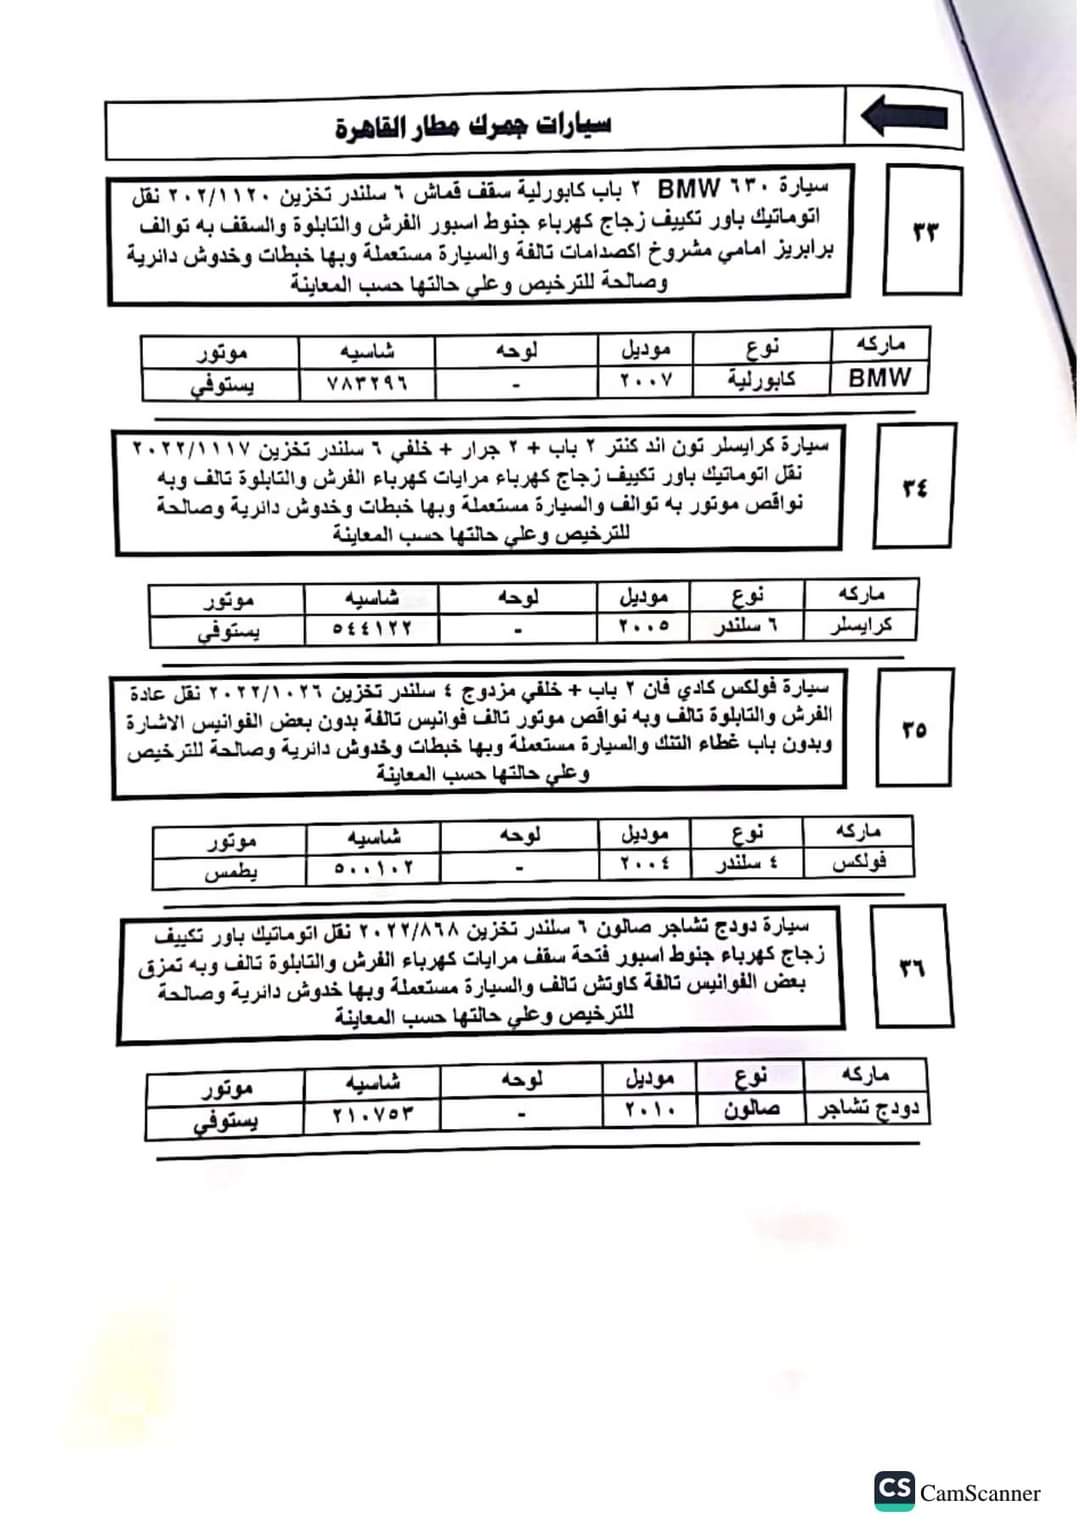 سيارات جمرك مطار القاهرة
٣٣
سيارة ٦٣٠ BMW ٢ باب كابورلية سقف قماش ٦ سلندر تخزين ٢٠٢/١١٢٠ نقل
اتوماتيك باور تكييف زجاج كهرباء جنوط اسبور الفرش والتابلوة والسقف به توالف
برابريز امامي مشروخ اكصدامات تالفة والسيارة مستعملة وبها خبطات وخدوش دائرية
وصالحة للترخيص وعلي حالتها حسب المعاينة
ماركه نوع موديل لوحه شاسيه موتور
BMW كابورلية ٢٠٠٧ - ٧٨٣٢٩٦ يستوفي
٣٤
سيارة كرايسلر تون اند كنتر ٢ باب + ٢ جرار + خلفي ٦ سلندر تخزين ٢٠٢٢/١١١٧
نقل اتوماتيك باور تكييف زجاج كهرباء مرايات كهرباء الفرش والتابلوة تالف وبه
نواقص موتور به توالف والسيارة مستعملة وبها خبطات وخدوش دائرية وصالحة
للترخيص وعلي حالتها حسب المعاينة
ماركه نوع موديل لوحه شاسيه موتور
كرايسلر ٦ سلندر ٢٠٠٥ - ٥٤٤١٢٢ يستوفي
٣٥
سيارة فولكس كادي فان ٢ باب + خلفي مزدوج ٤ سلندر تخزين ٢٠٢٢/١٠٢٦ نقل عادة
الفرش والتابلوة تالف وبه نواقص موتور تالف فوانيس تالفة بدون بعض الفوانيس الاشارة
وبدون باب غطاء التنك والسيارة مستعملة وبها خبطات وخدوش دائرية وصالحة للترخيص
وعلي حالتها حسب المعاينة
ماركه نوع موديل لوحه شاسيه موتور
فولكس ٤ سلندر ٢٠٠٤ - ٥٠٠١٠٢ يطمس
٣٦
سيارة دودج تشاجر صالون ٦ سلندر تخزين ٢٠٢٢/٨٦٨ نقل اتوماتيك باور تكييف
زجاج كهرباء جنوط اسبور فتحة سقف مرايات كهرباء الفرش والتابلوة تالف وبه تمزق
بعض الفوانيس تالفة كاوتش تالف والسيارة مستعملة وبها خدوش دائرية وصالحة
للترخيص وعلي حالتها حسب المعاينة
ماركه نوع موديل لوحه شاسيه موتور
دودج تشاجر صالون ٢٠١٠ - ٢١٠٧٥٣ يستوفي
CS CamScanner